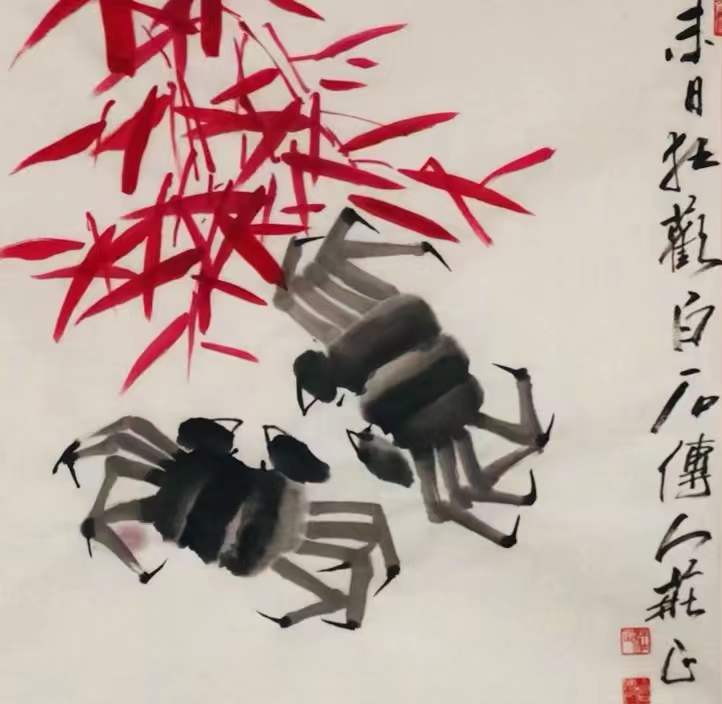 未日狂歡白石傳人莊正